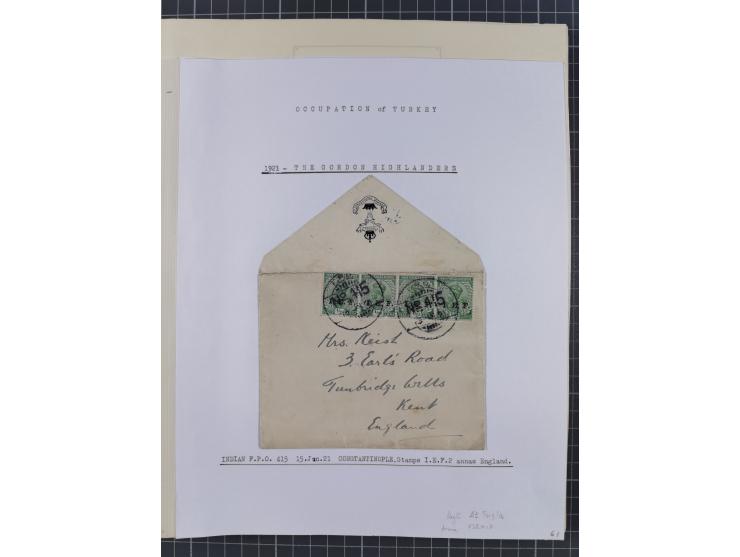 OCCUPATION of TURKEY
1921 - THE GORDON HIGHLANDERS
No 415
No 415
Mrs. Keish
3. Earl's Road
Tunbridge Wells
Kent
England
INDIAN F.P.O. 415 15.Jun.21 CONSTANTINOPLE.Stamps I.E.F.2 annas England.
61